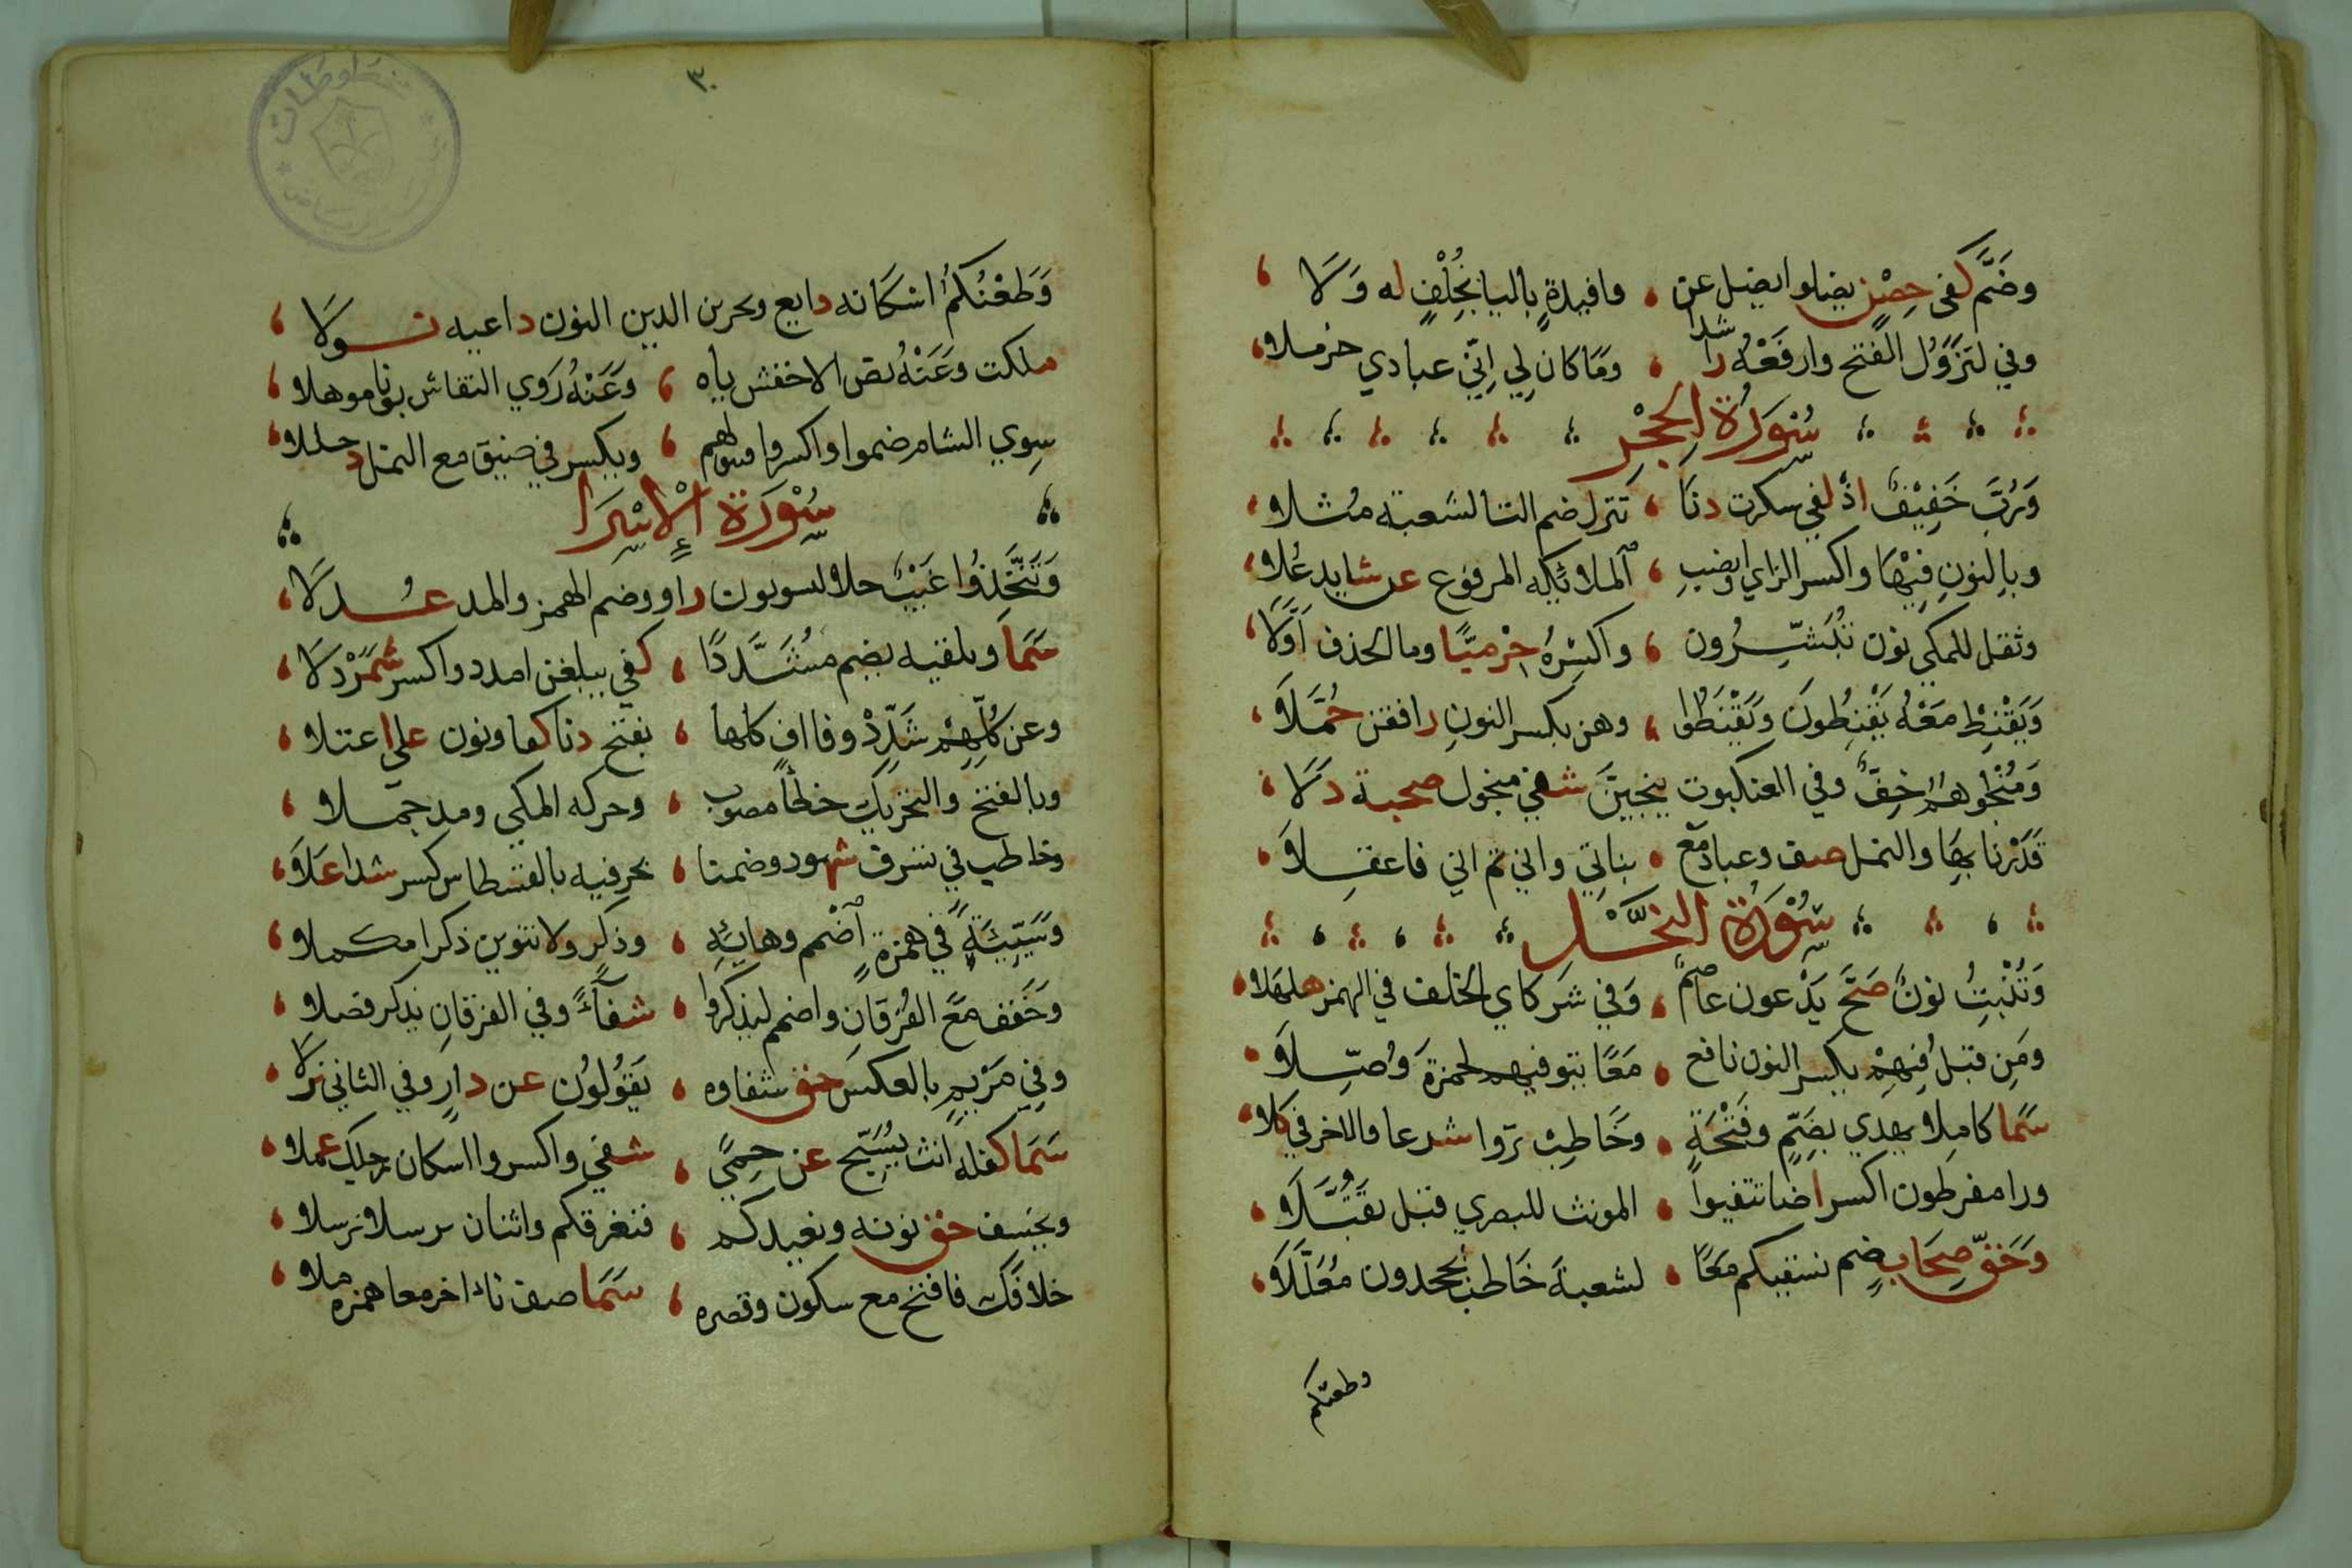 وضَمَّ كفى حِصْنٍ يضلوا يضل عن ، وافيدةٍ باليا بخُلْفٍ له وَلَا
وفي لتزوُل الفتح وارفعْهُ راشدا ، ومَا كان لي إنِّي عبادي خذ ملا
سُوْرَةُ الحِجْرِ
وَرُبَّ خَفِيْفٌ اذ لفي سكرت دنَا ، تنزل ضم التا لشعبة مثلا
وبالنونِ فِيْهَا واكسر الزاي وانصبِ ، الملائكه المرفوع عن شايد عُلا
وثقل للمكي نون تُبَشِّرُون ، واكسِرْهُ حِرْمِيًّا وما الحذف اَوَّلَا
وَيَقْنِطْ مَعْهُ يَقْنِطُونَ وَتَقْنَطُوا ، وهن بكسر النونِ رافقن حُمَّلَا
وَمُنْجُوهُمُ خِفٌّ وفي العنكبوت ينجيَنَّ شفى منجوك صحبة دَلَا
قَدَرْنا بِهَا والنمل صف وعباد مع ، بناتِي واني ثم اني فاعقِلَا
سُوْرَةُ النَّحْل
وَتُنْبِتُ نونٌ صَحَّ يَدْعون عاصمٌ ، وَفي شركاي الخلف في الهمز هلهلا
ومَن قبل فِيهِمْ بكسر النون نافع ، مَعًا يتوفيهم لحمزةَ وُصِّلَا
سَما كاملا يهدي بضَمٍّ وفَتْحَةٍ ، وخَاطِبْ تروا شرعا والاخر في كلا
ورا مفرطون اكسر اضا تتفيوا ، المونث للبصري قبل تُقُبِّلَا
وَحَقُّ صِحَابٍ ضم نسقيكم مَعًا ، لشعبةَ خَاطب تجحدون مُعَلَّلَا
وظعنكم
٣٠
وَظعْنُكُمُ اسْكَانه دايع ونجزين الذين النون داعيه نولَا
ملكت وَعَنْهُ نص الاخفش ياه ، وَعَنْهُ رَوي النقاش نونا موهلا
سِوي الشام ضموا واكسروا فتنوا لهم ، ويكسر في ضيق مع النمل دخللا
سُوْرَة الْإِسْرَا
وَتَتَّخِذُوا غَيْبٌ حلا ليسوون راو وضم الهمز والمد عُدلَا
سَمَا ويلقيه يضم مُشَدَّدًا ، كفي يبلغن امدد واكسر شَمَرْدلَا
وعن كُلِّهِمْ شَدِّدْ وفا اف كلها ، بفتح دنا كفا ونون علي اعتلا
وبالفتح والتحريك خطأ مصوب ، وحركه المكي ومد جملا
وخاطب في تسرف شهود وضمنا ، بحرفيه بالقسطاس كسر شدا عَلَا
وَسَيِّئَةً في همزةٍ اضْمم وهائِهِ ، وذكر ولا تنوين ذكرا مكملا
وَخَفف مَعَ الفُرقانِ واضمم ليذكُرُوا ، شفاءً وفي الفرقانِ يذكر فصلا
وفي مَرْيمٍ بالعكس حق شفاوه ، يَقُولُون عن دارٍ وفي الثاني نزلَا
سَمَا كفله انث يُسَبِّحُ عن حِمًى ، شفي واكسروا اسكان رجلك عملا
ويخسف حق نونه ونعيدكم ، فنغرقكم واثنان نرسل نرسلا
خلافَكَ فافتح مع سكون وقصره ، سَمَا صف نأى اخر معا همزه ملا